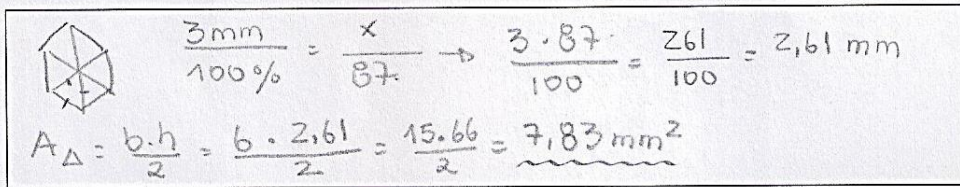 3mm/100% = x/87 → 3·87/100 = 261/100 = 2,61 mm
A△ = b.h/2 = 6·2,61/2 = 15.66/2 = 7,83 mm²